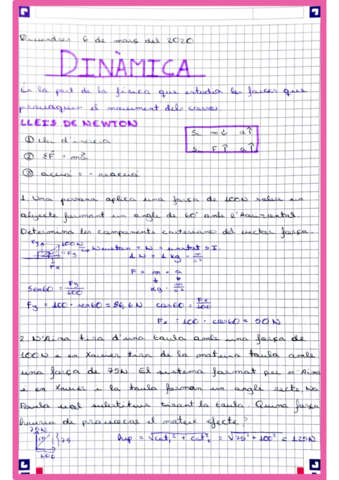 Divendres 6 de març del 2020
DINÀMICA
És la part de la física que estudia les forces que
provoquen el moviment dels cossos.
LLEIS DE NEWTON
① Llei d'inèrcia
② ΣF = m·a
③ acció = - reacció
Si m↓ a↑
Si F↑ a↑
1. Una persona aplica una força de 100N sobre un
objecte formant un angle de 60° amb l'horitzontal.
Determina les components cartesianes del vector força.
Fy 100N → Newton = N = unitat S.I.
Fx
1 N = 1 kg · m/s²
F = m · a
kg · m/s²
sen60 = Fy/100
Fy = 100 · sen60 = 86,6 N
cos60 = Fx/100
Fx = 100 · cos60 = 50 N
2. N'Aina tira d'una taula amb una força de
100N i en Xavier tira de la mateixa taula amb
una força de 75N. El sistema format per n'Aina
i en Xavier i la taula formen un angle recte. Na
Paula vol substituir tirant la taula. Quina força
hauria de provocar el mateix efecte?
75N
75
100
Hip = √cat₁² + cat₂² = √75² + 100² = 125N